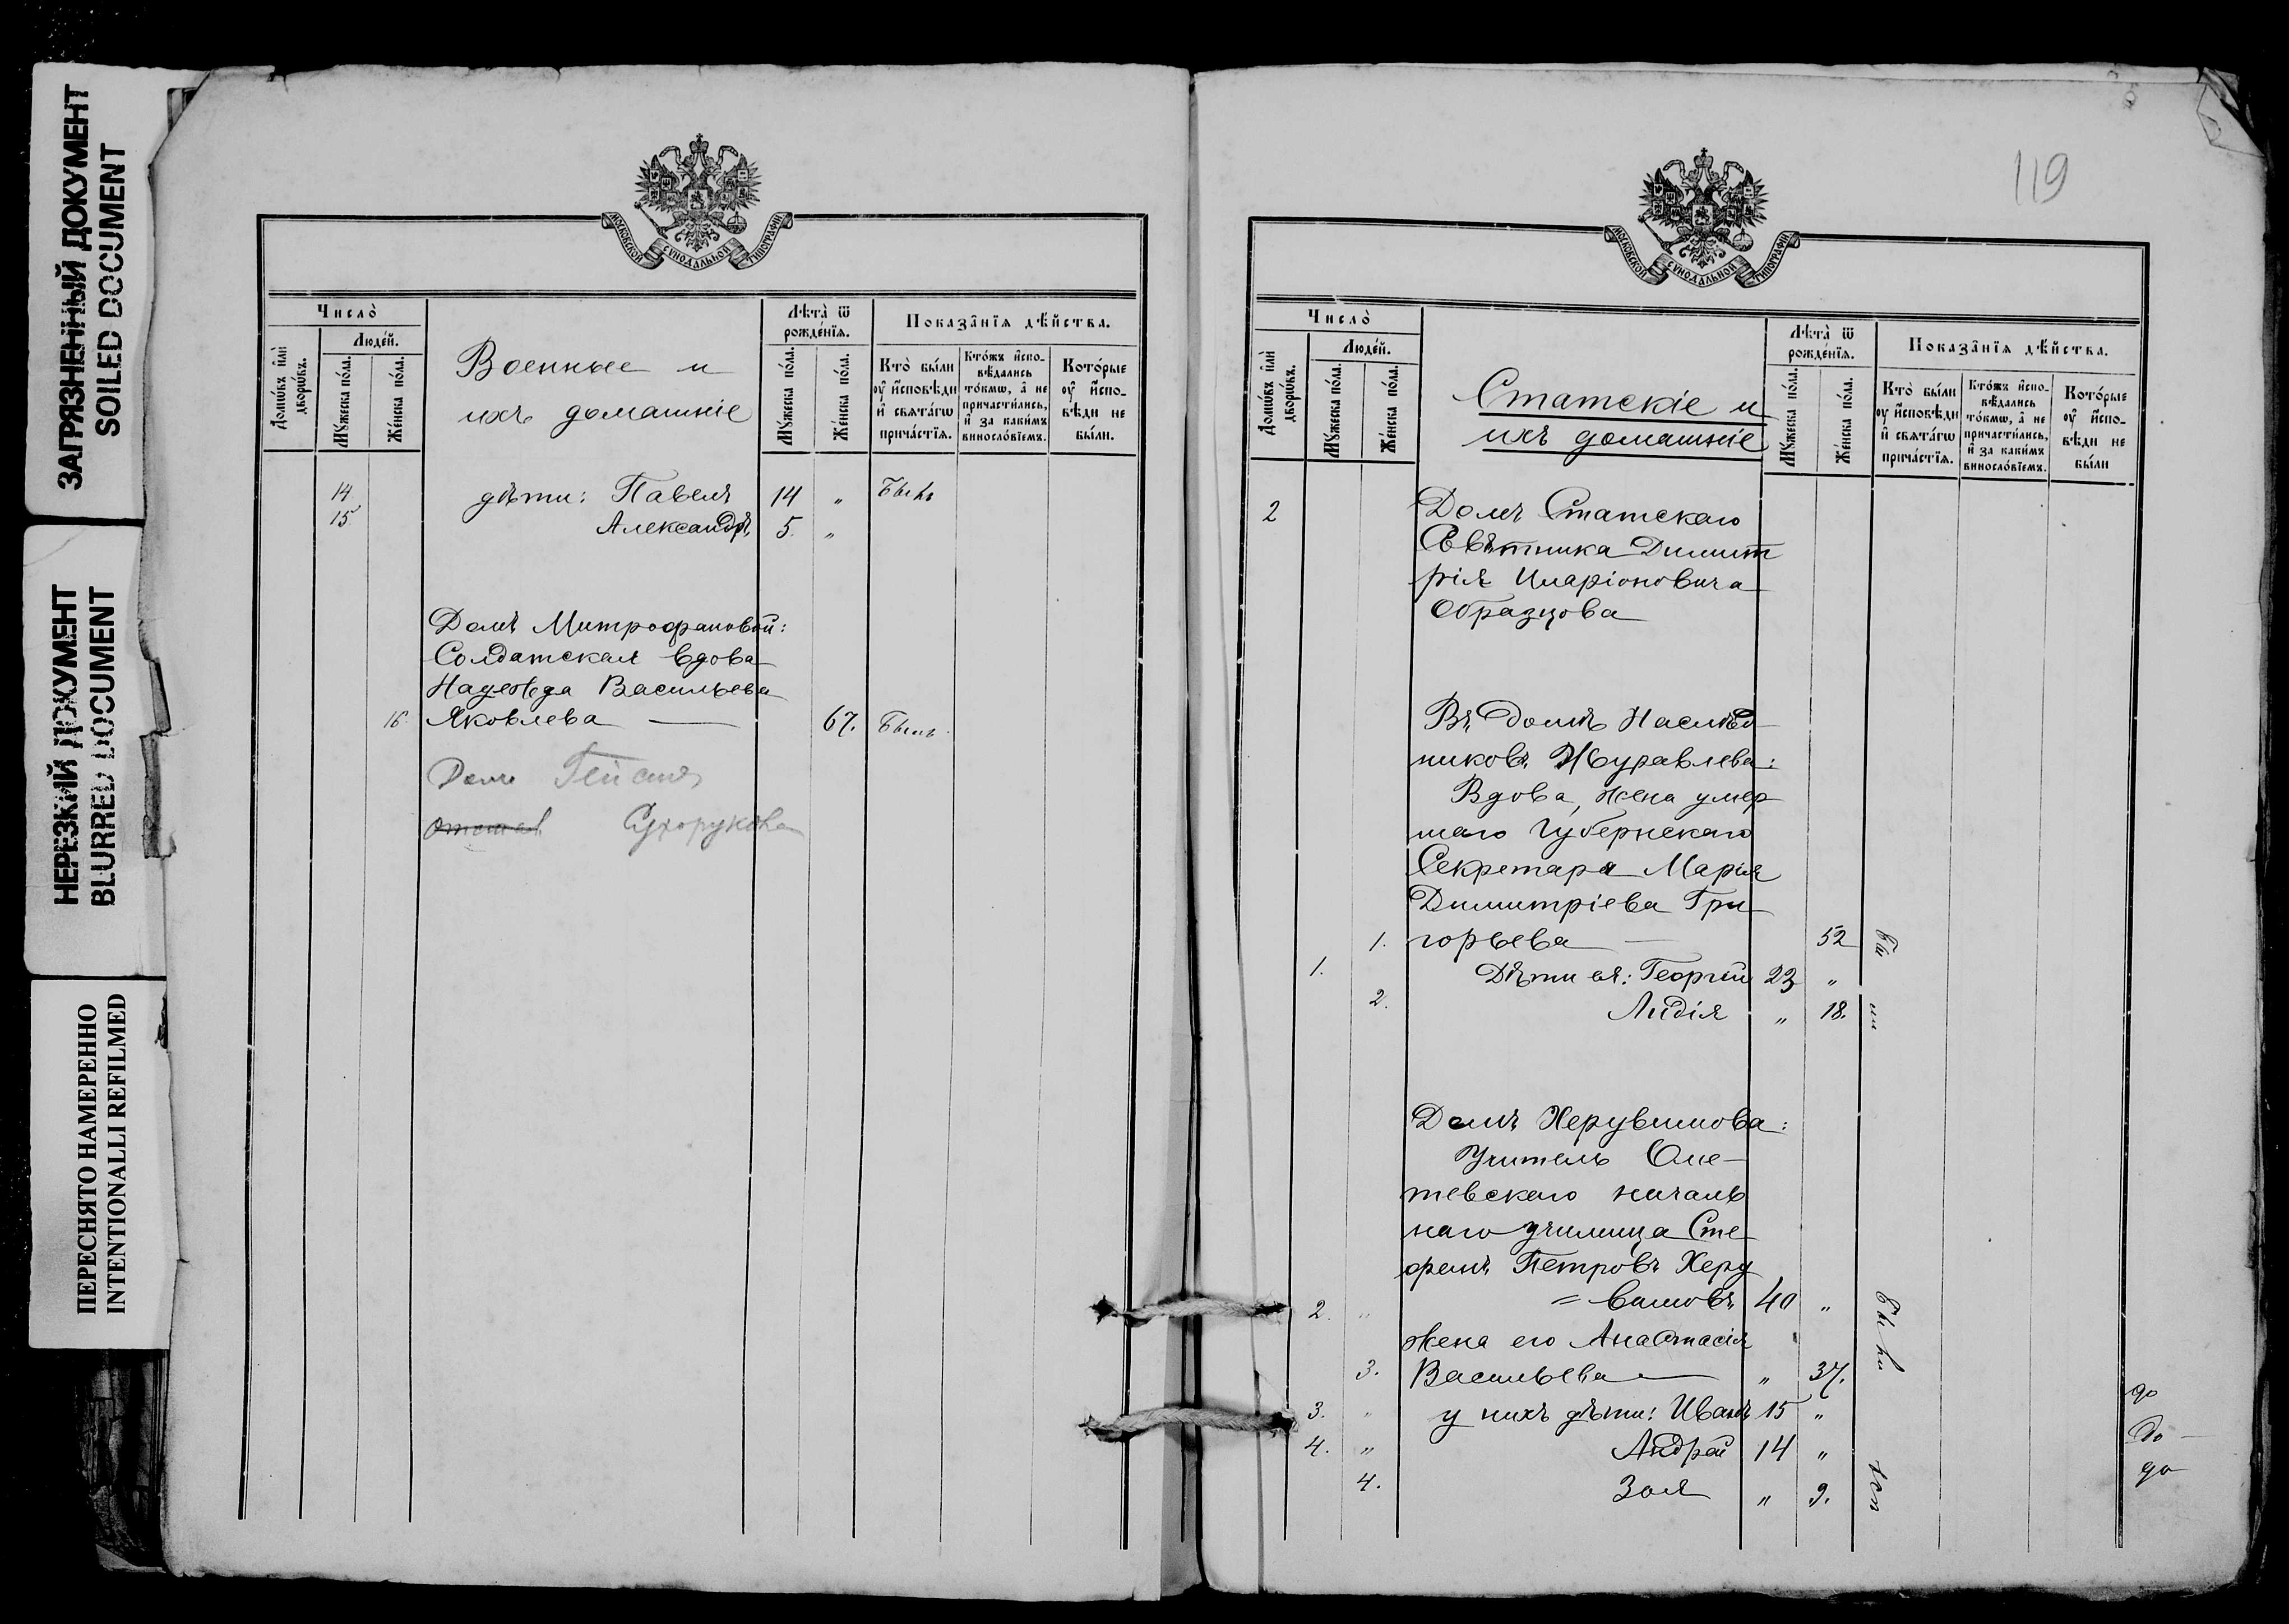 ЗАГРЯЗНЕННЫЙ ДОКУМЕНТ
SOILED DOCUMENT
НЕРЕЗКИЙ ДОКУМЕНТ
BLURRED DOCUMENT
ПЕРЕСНЯТО НАМЕРЕННО
INTENTIONALLI REFILMED
МОСКОВСКОЙ СѴНОДАЛЬНОЙ ТИПОГРАФІИ
Число̀
Домѡ́въ и҆лѝ дворѡ́въ.
Люде́й.
Мꙋ́жеска по́ла.
Же́нска по́ла.
Военные и
ихъ домашніе
Лѣ́та ѿ рожде́нїѧ.
Мꙋ́жеска по́ла.
Же́нска по́ла.
Показа̑нїѧ дѣ́йства.
Кто̀ бы́ли ᲂу҆ и҆́сповѣди и҆ свѧта́гѡ прича́стїѧ.
Кто́жъ и҆спо-вѣ́дались то́кмѡ, а҆ не причасти́лись, и҆ за каки́мъ винословїемъ.
Кото́рые ᲂу҆ и҆́спо-вѣди не бы́ли.
14 дѣти: Павелъ 14 „ Былъ
15 Александръ 5. „
Домъ Митрофановой:
Солдатская вдова
Надежда Васильева
16 Яковлева — 67. Былъ
Домъ
Сухорукова
119
МОСКОВСКОЙ СѴНОДАЛЬНОЙ ТИПОГРАФІИ
Число̀
Домѡ́въ и҆лѝ дворѡ́въ.
Люде́й.
Мꙋ́жеска по́ла.
Же́нска по́ла.
Статскіе и
ихъ домашніе
Лѣ́та ѿ рожде́нїѧ.
Мꙋ́жеска по́ла.
Же́нска по́ла.
Показа̑нїѧ дѣ́йства.
Кто̀ бы́ли ᲂу҆ и҆́сповѣди и҆ свѧта́гѡ прича́стїѧ.
Кто́жъ и҆спо-вѣ́дались то́кмѡ, а҆ не причасти́лись, и҆ за каки́мъ винословїемъ.
Кото́рые ᲂу҆ и҆́спо-вѣди не бы́ли
2 Домъ Статскаго
Совѣтника Димит
рія Иларіоновича
Образцова
Въ домѣ Наслѣд
никовъ Журавлева:
Вдова, жена умер
шаго Губернскаго
Секретаря Марія
Димитріева Гри
1. горьева — 52
1. Дѣти ея: Георгій 23 „
2. Лидія „ 18.
Домъ Херувимова:
Учитель
тевскаго началь
наго училища Сте
фанъ Петровъ Херу
2. „ = вимовъ 40 „
жена его Анастасія
3. Васильева — „ 37.
3. „ у нихъ дѣти: Иванъ 15 „ до
4. „ Андрей 14 „ до
4. Зоя „ 9. до